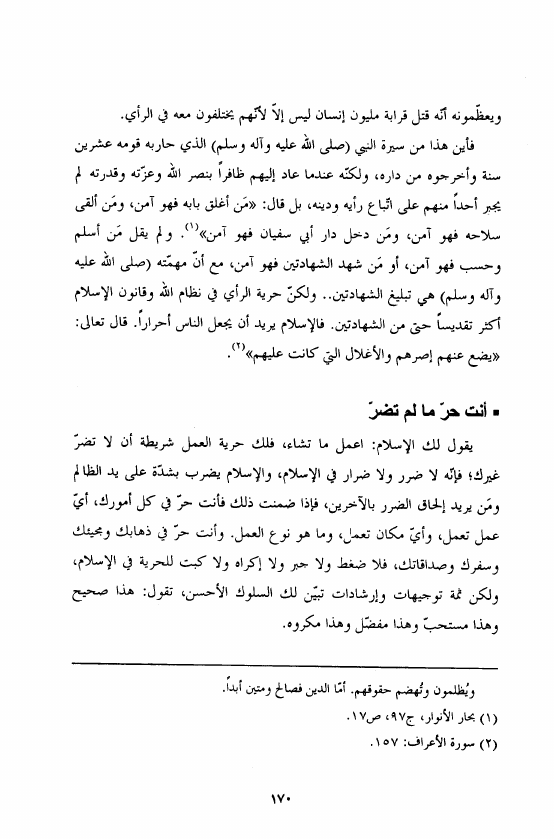 ويعظّمونه أنّه قتل قرابة مليون إنسان ليس إلاّ لأنّهم يختلفون معه في الرأي.
فأين هذا من سيرة النبي (صلى الله عليه وآله وسلم) الذي حاربه قومه عشرين
سنة وأخرجوه من داره، ولكنّه عندما عاد إليهم ظافراً بنصر الله وعزّته وقدرته لم
يجبر أحداً منهم على اتّباع رأيه ودينه، بل قال: «مَن أغلق بابه فهو آمن، ومَن ألقى
سلاحه فهو آمن، ومَن دخل دار أبي سفيان فهو آمن»(١). ولم يقل مَن أسلم
وحسب فهو آمن، أو مَن شهد الشهادتين فهو آمن، مع أنّ مهمّته (صلى الله عليه
وآله وسلم) هي تبليغ الشهادتين.. ولكنّ حرية الرأي في نظام الله وقانون الإسلام
أكثر تقديساً حتى من الشهادتين. فالإسلام يريد أن يجعل الناس أحراراً. قال تعالى:
«يضع عنهم إصرهم والأغلال التي كانت عليهم»(٢).
▪ أنت حرّ ما لم تضرّ
يقول لك الإسلام: اعمل ما تشاء، فلك حرية العمل شريطة أن لا تضرّ
غيرك؛ فإنّه لا ضرر ولا ضرار في الإسلام، والإسلام يضرب بشدّة على يد الظالم
ومَن يريد إلحاق الضرر بالآخرين، فإذا ضمنت ذلك فأنت حرّ في كل أمورك، أيّ
عمل تعمل، وأيّ مكان تعمل، وما هو نوع العمل. وأنت حرّ في ذهابك ومجيئك
وسفرك وصداقاتك، فلا ضغط ولا جبر ولا إكراه ولا كبت للحرية في الإسلام،
ولكن ثمة توجيهات وإرشادات تبيّن لك السلوك الأحسن، تقول: هذا صحيح
وهذا مستحبّ وهذا مفضّل وهذا مكروه.
ويُظلمون وتُهضم حقوقهم. أمّا الدين فصالح ومتين أبداً.
(١) بحار الأنوار، ج٩٧، ص١٧.
(٢) سورة الأعراف: ١٥٧.
١٧٠